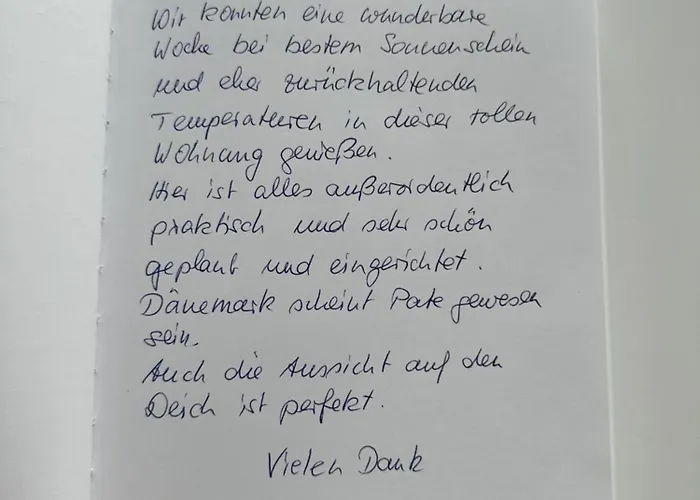 Wir konnten eine wunderbare
Woche bei bestem Sonnenschein
und eher zurückhaltenden
Temperaturen in dieser tollen
Wohnung genießen.
Hier ist alles außerordentlich
praktisch und sehr schön
geplant und eingerichtet.
Dänemark scheint Pate gewesen
sein.
Auch die Aussicht auf den
Deich ist perfekt.
Vielen Dank